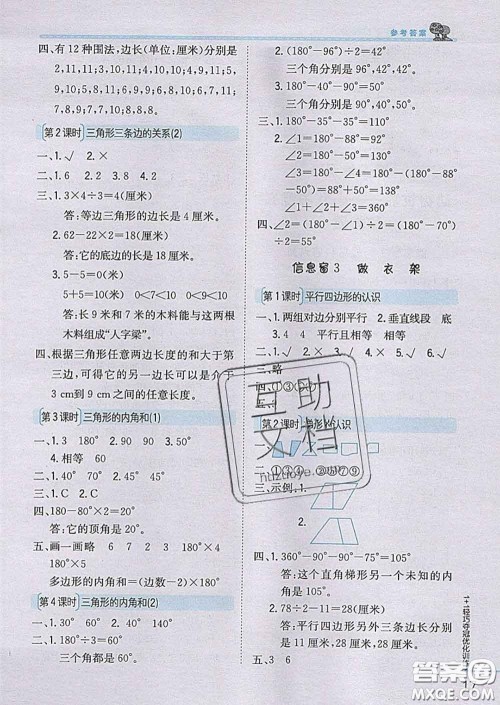 参考答案
四、有 12 种围法,边长(单位:厘米)分别是
2,11,11;3,10,11;4,10,10;4,9,11;
5,9,10;5,8,11;6,9,9;6,8,10;6,7,11;
7,8,9;7,7,10;8,8,8。
第 2 课时 三角形三条边的关系(2)
一、1.√ 2.×
二、1.6 2.2 3.8 4.18
三、1.3×4÷3=4(厘米)
答:等边三角形的边长是 4 厘米。
2.62-22×2=18(厘米)
答:它的底边的长是 18 厘米。
3.5-5=0(厘米)
5+5=10(厘米) 0<7<10 0<9<10
答:长 9 米和 7 米的木料能与两根 5 米
木料组成“人字梁”。
四、根据三角形任意两边长度的和大于第
三边,可得另一边的长度可以是介于
3 cm到 9 cm之间的任意长度。
第 3 课时 三角形的内角和(1)
一、1.3 180° 2.90° 3.45°
4.相等 60°
二、40° 70° 45° 45°
三、1.C 2.C
四、180-80°×2=20°
答:它的顶角是 20°。
五、画一画略 5 6 7 180°×4
180°×5
多边形的内角和=(边数-2)×180°
第 4 课时 三角形的内角和(2)
一、1.√ 2.√ 3.×
二、1.180°÷3=60°
三个角都是 60°。
2.(180°-96°)÷2=42°
三个角分别是 96°,42°,42°。
3.180°-90°-40°=50°
三个角分别是 90°,40°,50°。
三、∠1=180°-88°-50°=42°
∠2=180°-90°-48°=42°
∠3=180°-85°-53°=42°
∠1=180°-(180°-88°-50°)
=180°-180°+88°+50°=138°
四、∠1=180°-(180°-50°-70°)=120°
∠2=55°
信息窗 3 做衣架
第 1 课时 平行四边形的认识
一、1.两组对边分别平行 2.垂直线段 底
3.4 4 平行且相等 相等
二、1.√ 2.√ 3.√ 4.× 5.√
三、略
第 2 课时
三、示例:1.
四、1.360°-90°-90°-75°=105°
答:这个直角梯形另一个未知的内角
是 105°。
2.78÷2-11=28(厘米)
答:平行四边形另外三条边长分别是
11 厘米,28 厘米,28 厘米。
五、3 6
互助
文档
1+1轻巧夺冠优化训练
答案圈
MXQE.COM